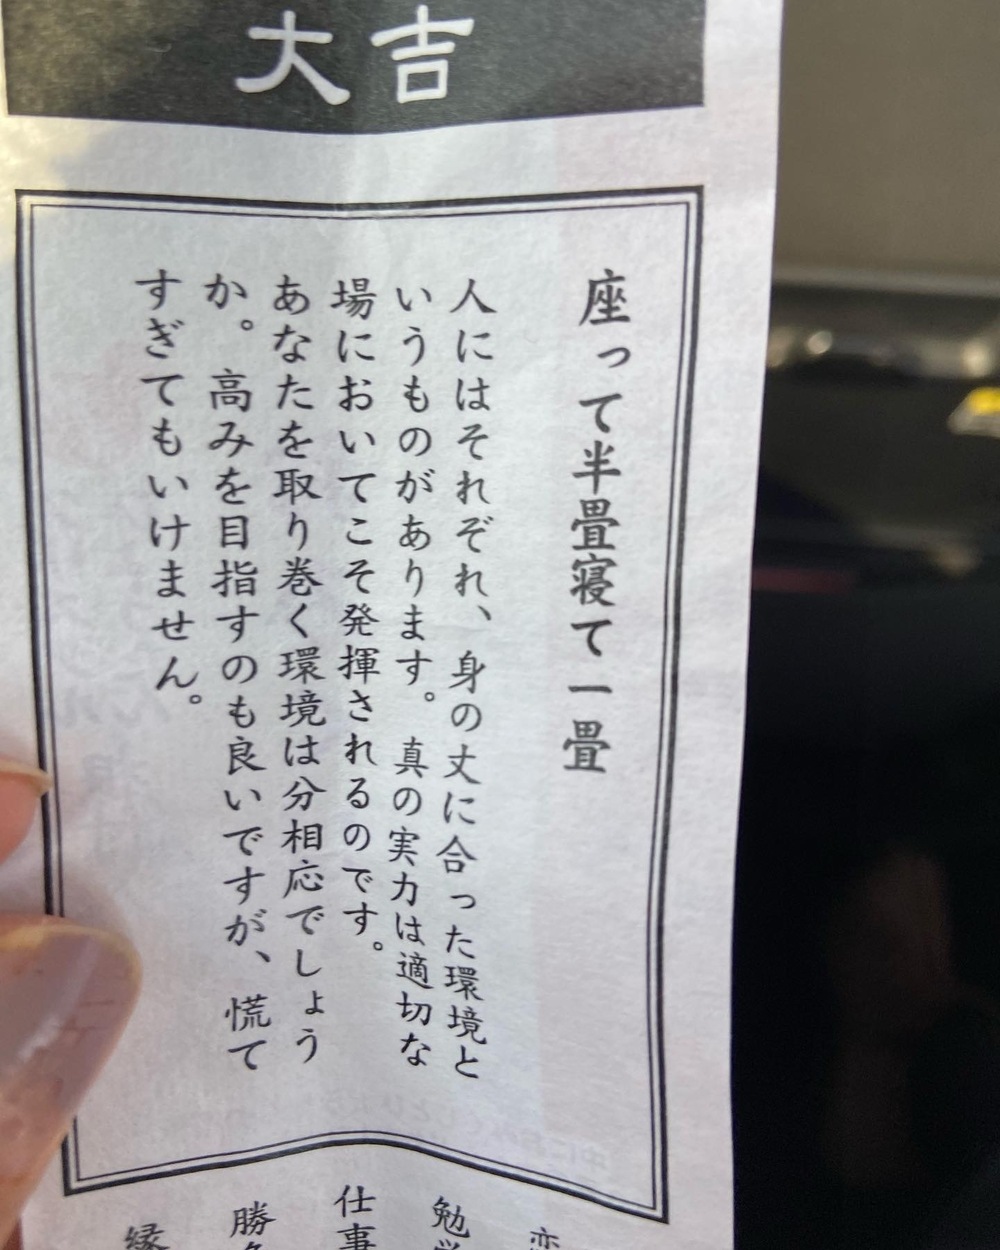 大吉
座って半畳寝て一畳
人にはそれぞれ、身の丈に合った環境と
いうものがあります。真の実力は適切な
場においてこそ発揮されるのです。
あなたを取り巻く環境は分相応でしょう
か。高みを目指すのも良いですが、慌て
すぎてもいけません。
恋
勉学
仕事
勝負
縁